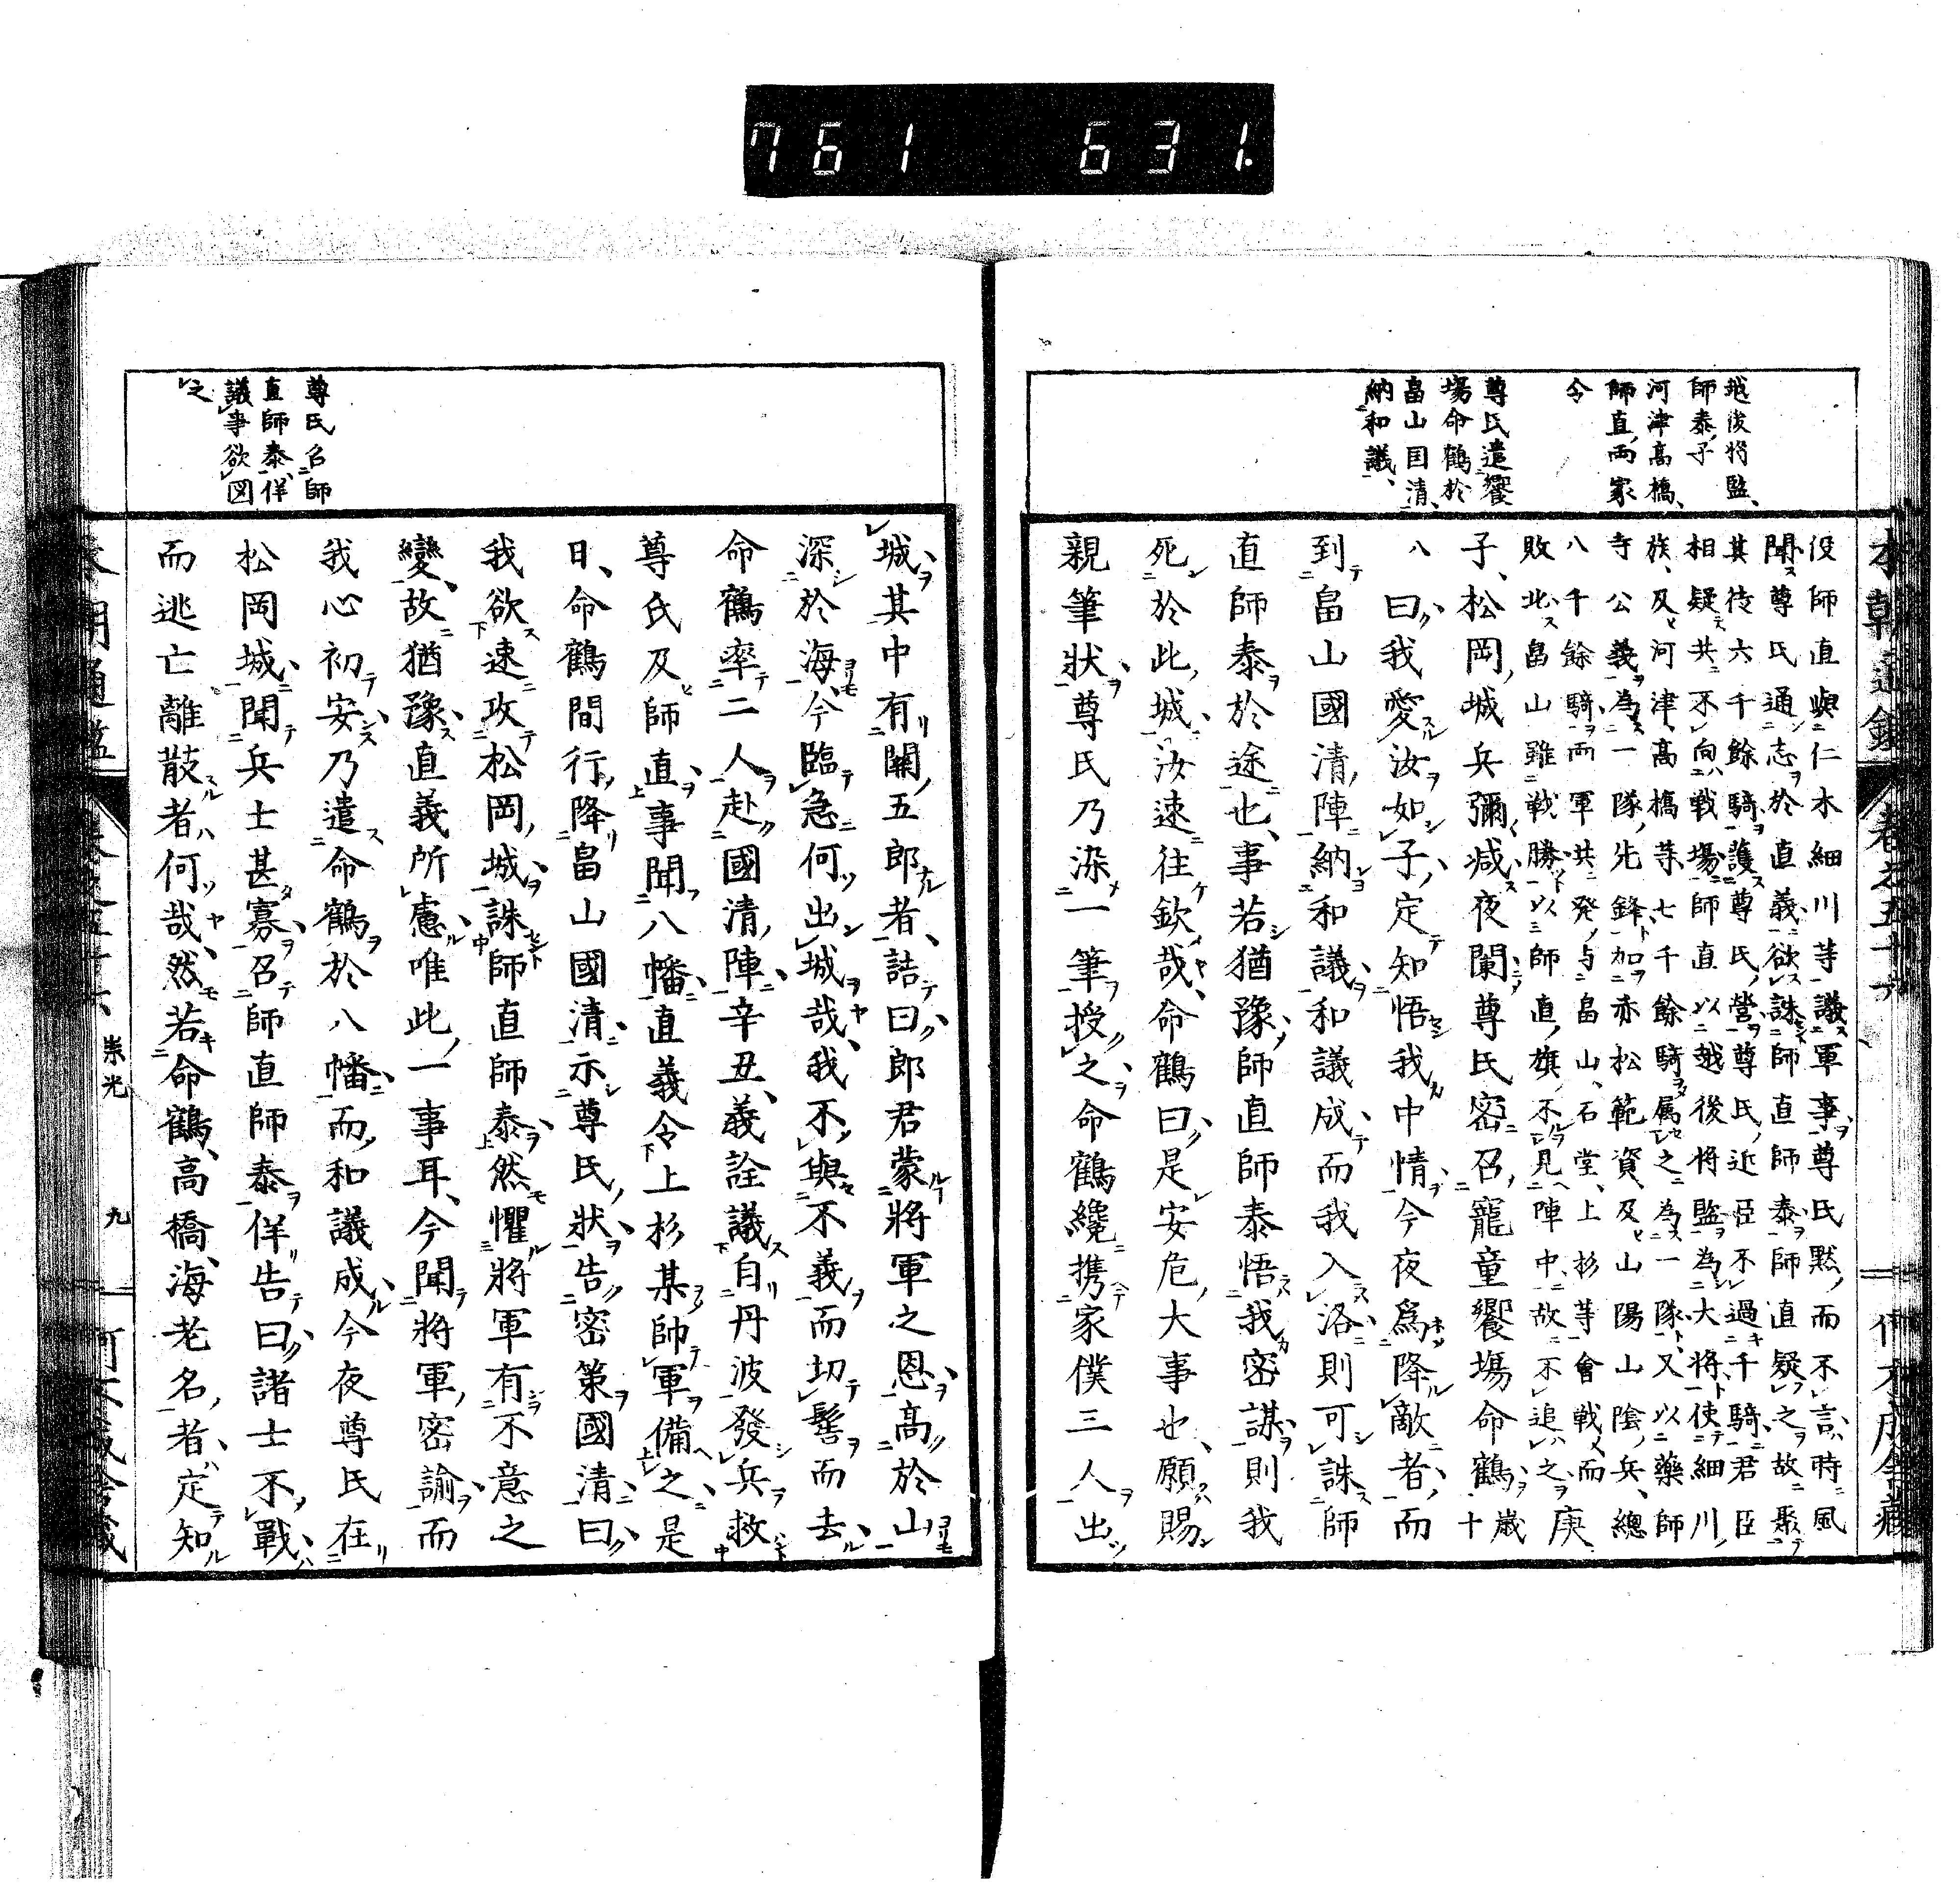 761 631.
越後將監、
師泰子
河津高橋、
師直両家
令
尊氏遣饗
場命鶴於
畠山国清
納和議、
役師直與仁木細川等議軍事尊氏黙而不言時風
聞尊氏通志於直義欲誅師直師泰師直疑之故聚
其徒六千餘騎護尊氏營尊氏近臣不過千騎君臣
相疑共不向戰場師直以越後將監為大将使細川
族及河津高橋等七千餘騎属之為一隊又以藥師
寺公義為一隊先鋒加赤松範資及山陽山陰兵總
八千餘騎両軍共発与畠山石堂上杉等會戰而
敗北畠山雖戰勝以師直旗不見陣中故不追之庚
子松岡城兵彌減夜闌尊氏密召寵童饗場命鶴歳十
八曰我愛汝如子定知悟我中情今夜爲降敵者而
到畠山國清陣納和議和議成而我入洛則可誅師
直師泰於途也事若猶豫師直師泰悟我密謀則我
死於此城汝速往欽哉命鶴曰是安危大事也願賜
親筆狀尊氏乃染一筆授之命鶴纔携家僕三人出
城其中有關五郎者詰曰郎君蒙將軍之恩高於山
深於海今臨急何出城哉我不與不義而切髻而去
命鶴率二人赴國清陣辛丑義詮議自丹波發兵救
尊氏及師直事聞八幡直義令上杉某帥軍備之是
日命鶴間行降畠山國清示尊氏狀告密策國清曰
我欲速攻松岡城誅師直師泰然懼將軍有不意之
變故猶豫直義所慮唯此一事耳今聞將軍密諭而
我心初安乃遣命鶴於八幡而和議成今夜尊氏在
松岡城聞兵士甚寡召師直師泰佯告曰諸士不戰
而逃亡離散者何哉然若命鶴高橋海老名者定知
尊氏召師
直師泰佯
議事欲図
之
崇光
九